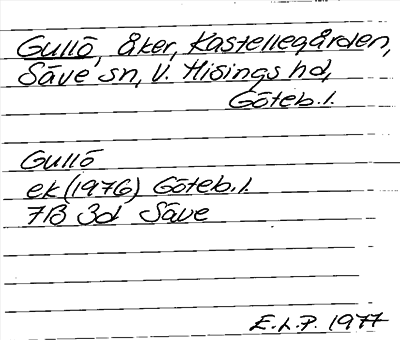 Gullö, Åker, Kastellegården,
Säve sn, V. Hisings hd,
Göteb. l.
Gullö
ek (1976) Göteb. l.
7B 3d Säve
E.L.P. 1977